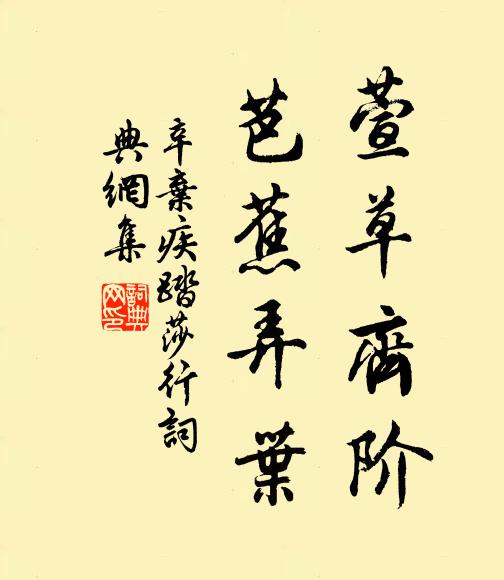 萱草齊阶
芭蕉弄葉
辛棄疾踏莎行詞
典網集
詞典網印